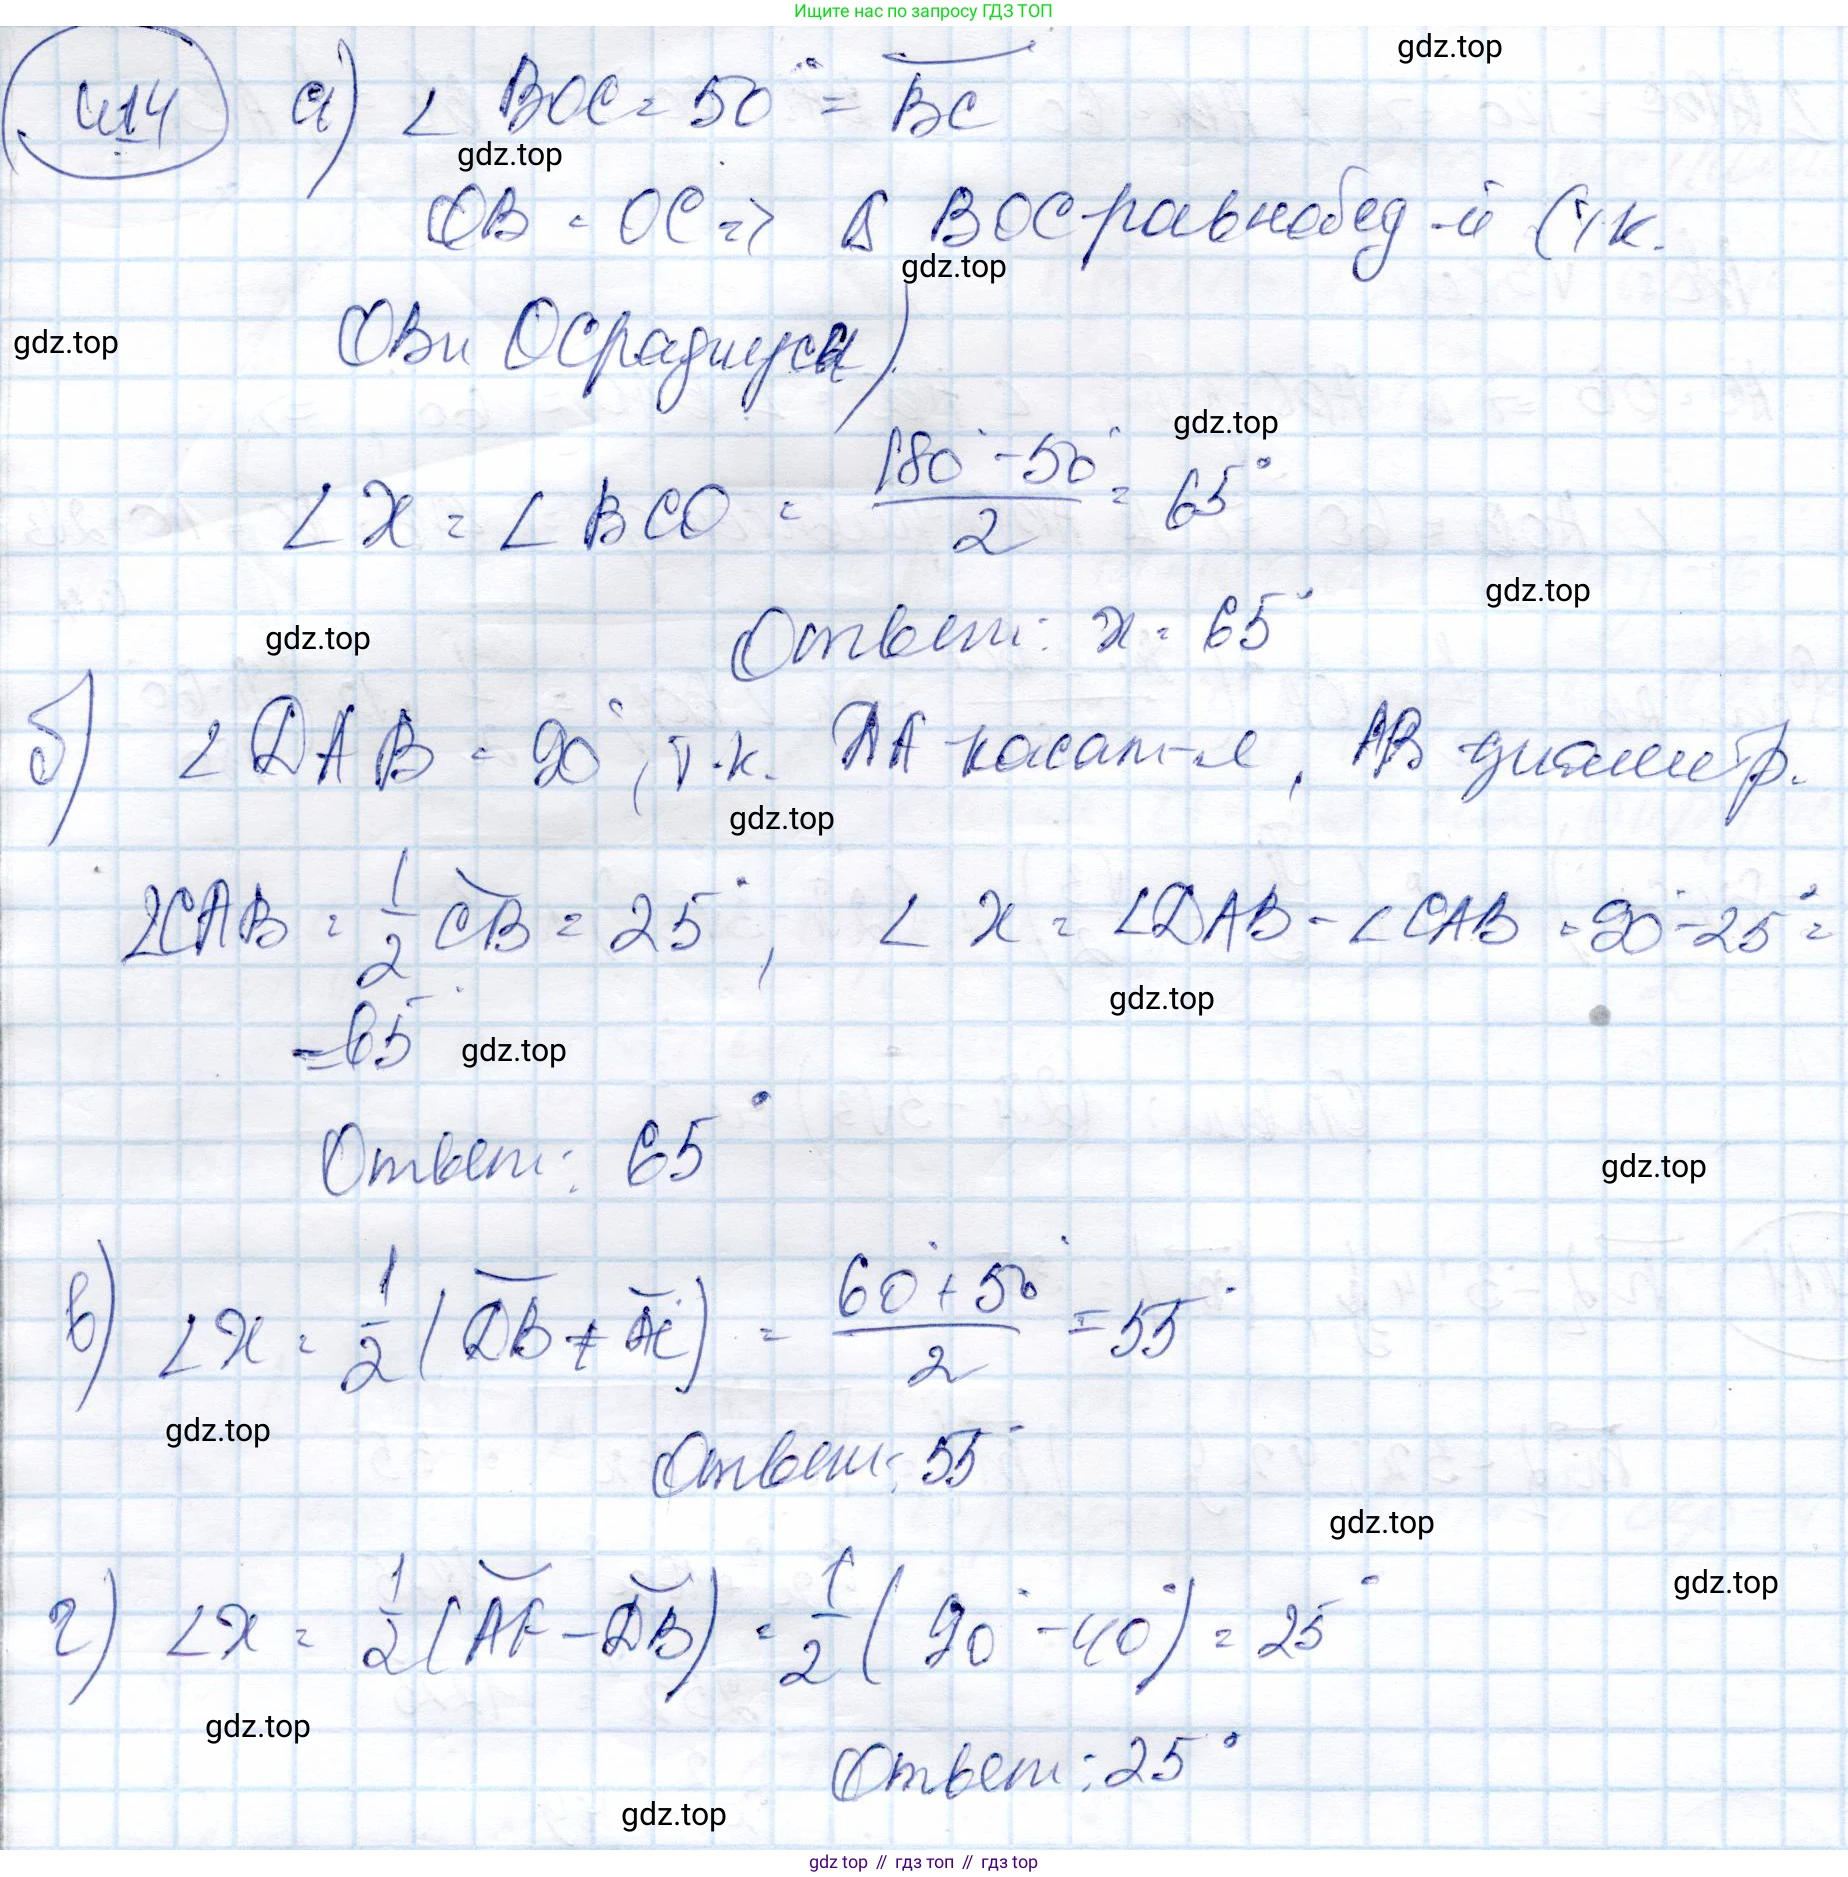 Ищите нас по запросу ГДЗ ТОП
gdz.top
414 а) ∠ BOC = 50° = ⌒BC
gdz.top
OB = OC => Δ BOC равнобед-й (т.к.
gdz.top
OB и OC радиусы)
gdz.top
gdz.top
∠ x = ∠ BCO = (180° - 50°)/2 = 65°
gdz.top
gdz.top
Ответ: x = 65°
б) ∠ DAB = 90°, т.к. DA - касат-я, AB - диаметр.
gdz.top
∠CAB = 1/2 ⌒CB = 25°, ∠ x = ∠DAB - ∠CAB = 90° - 25° =
gdz.top
= 65°
gdz.top
Ответ: 65°
gdz.top
в) ∠x = 1/2 (⌒DB + ⌒AC) = (60° + 50°)/2 = 55°
gdz.top
Ответ: 55°
gdz.top
gdz.top
г) ∠x = 1/2 (⌒AF - ⌒DB) = 1/2 (90° - 40°) = 25°
gdz.top
Ответ: 25°
gdz.top
gdz top // гдз топ // гдз top